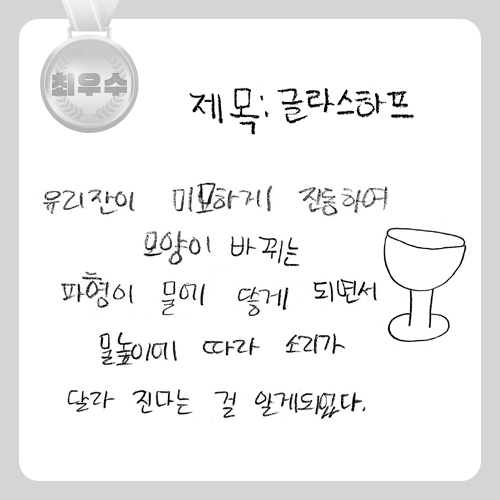 최우수
제목:글라스하프
유리잔이 미묘하게 진동하여
모양이 바뀌는
파형이 물에 닿게 되면서
물높이에 따라 소리가
달라 진다는 걸 알게되었다.